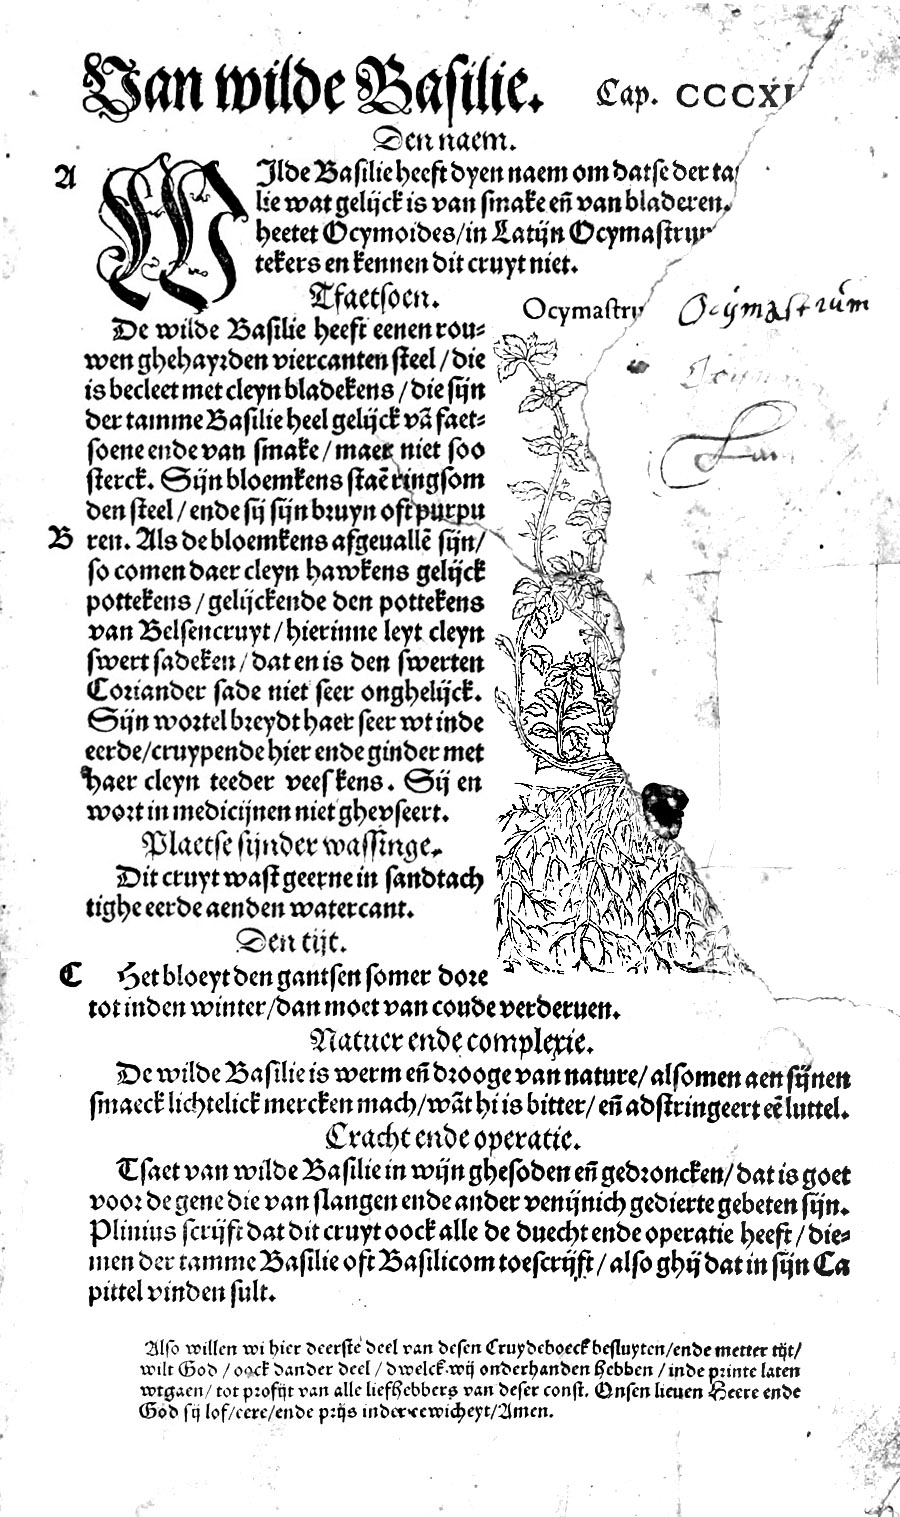 Van wilde Basilie. Cap. CCCXL
Den naem.
A WIlde Basilie heeft dyen naem om datse der ta
lie wat gelijck is van smake eñ van bladeren.
heetet Ocymoides/in Latijn Ocymastrum
tekers en kennen dit cruyt niet.
Tfaetsoen.
Ocymastru
Ocÿmastrŭm
De wilde Basilie heeft eenen rou-
wen ghehayrden viercanten steel/die
is becleet met cleyn bladekens/die sijn
der tamme Basilie heel gelijck vã faet-
soene ende van smake/maer niet soo
sterck. Sijn bloemkens staẽ ringsom
den steel/ende sij sijn bruyn oft purpu
B ren. Als de bloemkens afgeuallẽ sijn/
so comen daer cleyn hawkens gelijck
pottekens/gelijckende den pottekens
van Belsencruyt/hierinne leyt cleyn
swert sadeken/dat en is den swerten
Coriander sade niet seer onghelijck.
Sijn wortel breydt haer seer wt inde
eerde/cruypende hier ende ginder met
haer cleyn teeder veeskens. Sij en
wort in medicijnen niet ghevseert.
Plaetse sijnder wassinge.
Dit cruyt wast geerne in sandtach
tighe eerde aenden watercant.
Den tijt.
C Het bloeyt den gantsen somer dore
tot inden winter/dan moet van coude verderuen.
Natuer ende complexie.
De wilde Basilie is werm eñ drooge van nature/alsomen aen sijnen
smaeck lichtelick mercken mach/wãt hi is bitter/eñ adstringeert eẽ luttel.
Cracht ende operatie.
Tsaet van wilde Basilie in wijn ghesoden eñ gedroncken/dat is goet
voor de gene die van slangen ende ander venijnich gedierte gebeten sijn.
Plinius scrijft dat dit cruyt oock alle de duecht ende operatie heeft/die-
men der tamme Basilie oft Basilicom toescrijft/also ghij dat in sijn Ca
pittel vinden sult.
Also willen wi hier deerste deel van desen Cruydeboeck besluyten/ende metter tijt/
wilt God/oock dander deel/dwelck wij onderhanden hebben/inde printe laten
wtgaen/tot profijt van alle liefhebbers van deser const. Onsen lieuen Heere ende
God sij lof/eere/ende prijs inder eewicheyt/Amen.